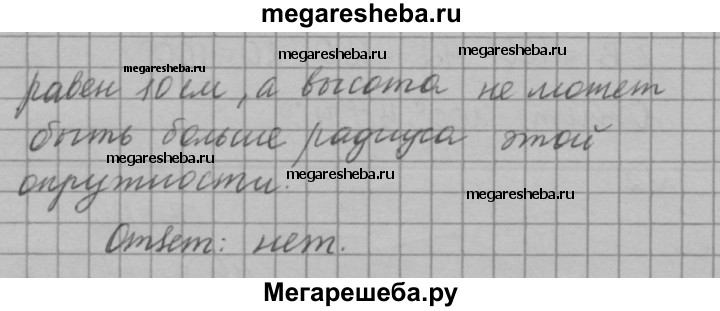 megaresheba.ru
megaresheba.ru megaresheba.ru
megaresheba.ru
равен 10 см, а высота не может
быть больше радиуса этой
megaresheba.ru megaresheba.ru megaresheba.ru
окружности.
Ответ: нет.
Мегарешеба.ру